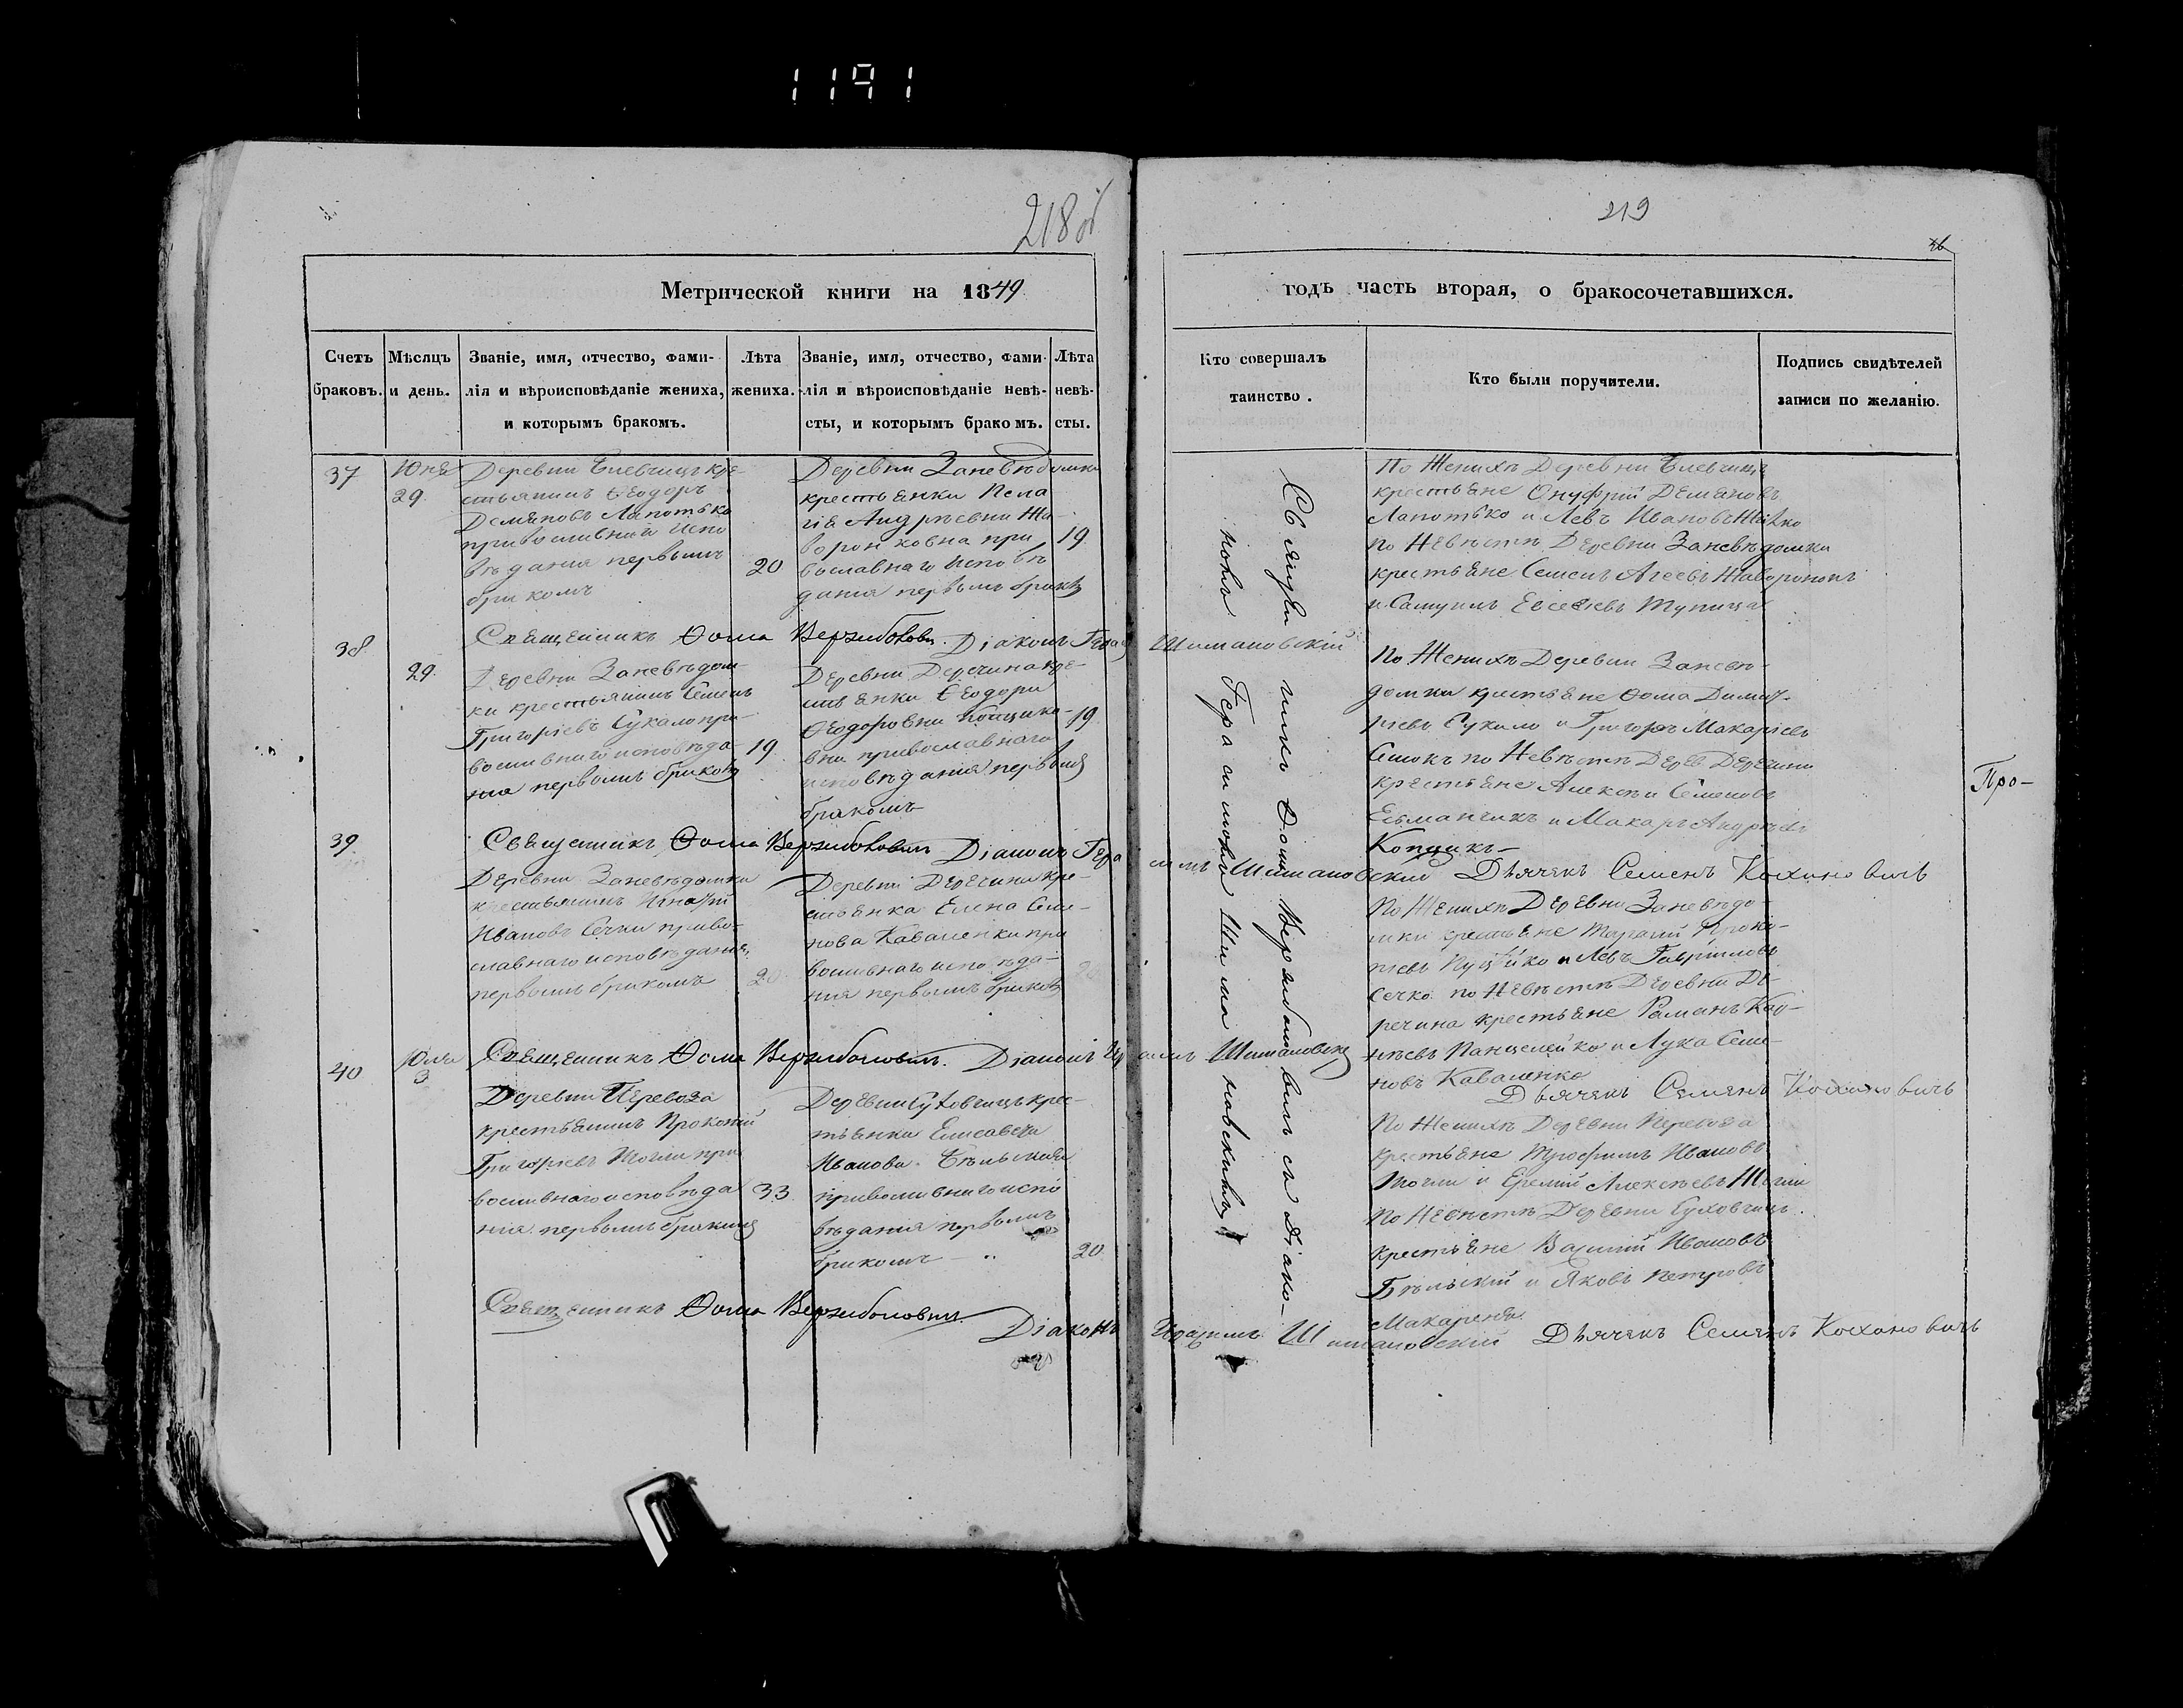 1191
218 об
219
46
Метрической книги на 1849
годъ часть вторая, о бракосочетавшихся.
Счетъ браковъ.
Мѣсяцъ и день.
Званіе, имя, отчество, фами-
лія и вѣроисповѣданіе жениха,
и которымъ бракомъ.
Лѣта жениха.
Званіе, имя, отчество, фами-
лія и вѣроисповѣданіе невѣ-
сты, и которымъ бракомъ.
Лѣта невѣ-
сты.
Кто совершалъ
таинство.
Кто были поручители.
Подпись свидѣтелей
записи по желанію.
37
Юня
29.
Деревни кре-
стьянинъ Ѳеодоръ
Демяновъ Лапотько
православный испо
вѣдания первымъ
бракомъ
20
Деревни Заневѣдомки
крестьянка Пела
гія Андрѣевна Жа-
воронковна пра
вославнаго исповѣ
дания первымъ бракомъ
19
По Женихѣ Деревни
крестьяне Онуфрій Демяновъ
Лапотько и Левъ Ивановъ
по Невѣстѣ Деревни Заневѣдомки
крестьяне Семенъ Агеевъ Жаворонокъ
и Самуилъ Евсеевъ Тупица
Священникъ Ѳома Вержболовичъ. Діаконъ Шимановскій
38
29.
Деревни Заневѣдом-
ки крестьянинъ Семенъ
Григоріевъ Сукало пра-
вославнаго исповѣда-
ния первымъ бракомъ
19.
Деревни Деречина кре-
стьянка Ѳеодора
Ѳеодоровна Копцико-
вна православнаго
исповѣдания первымъ
бракомъ
19
По Женихѣ Деревни Заневѣ-
домки крестьяне Ѳома Димит-
ріевъ Сукало и Григоръ Макаріевъ
по Невѣстѣ Дерев. Деречина
крестьяне Алексѣй Семеновъ
и Макаръ Андрѣевъ
Копцикъ
Про-
Священникъ Ѳома Вержболовичъ Діаконъ Гера симъ Шимановскій Дьячекъ Семенъ Кохановичъ
39
Деревни Заневѣдомки
крестьянинъ Игнатій
Ивановъ Сечка право-
славнаго исповѣдания,
первымъ бракомъ
20
Деревни Деречина кре-
стьянка Елена Семе-
нова Каваленка пра
вославнаго исповѣда-
ния первымъ бракомъ
20
По Женихѣ Деревни Заневѣдо-
мки крестьяне Тарасій Проко-
піевъ и Левъ Гавріиловъ
Сечко по Невѣстѣ Деревни Де-
речина крестьяне Романъ
Панцелейко и Лука Семе-
новъ Каваленко
Дьячекъ Семенъ Кохановичъ
Священникъ Ѳома Вержболовичъ. Діаконъ Шимановскій
40
Юля
3
Деревни Перевоза
крестьянинъ Прокопій
Григоріевъ пра
вославнаго исповѣда
ния первымъ бракомъ
33
Деревни Суховчицъ крес-
тьянка Елисавета
Иванова Бѣльская
православнаго испо
вѣдания первымъ
бракомъ
20
По Женихѣ Деревни Перевоза
крестьяне Трофимъ Ивановъ
и Еремій Алексѣевъ
По Невѣстѣ Деревни Суховчицъ
крестьяне Василій Ивановъ
Бѣльскій и Яковъ Петровъ
Макареня
Священникъ Ѳома Вержболовичъ.
Діаконъ Шимановскій Дьячекъ Семенъ Кохановичъ
Священникъ Ѳома Вержболовичъ съ Діако-
номъ Герасимомъ Шимановскимъ